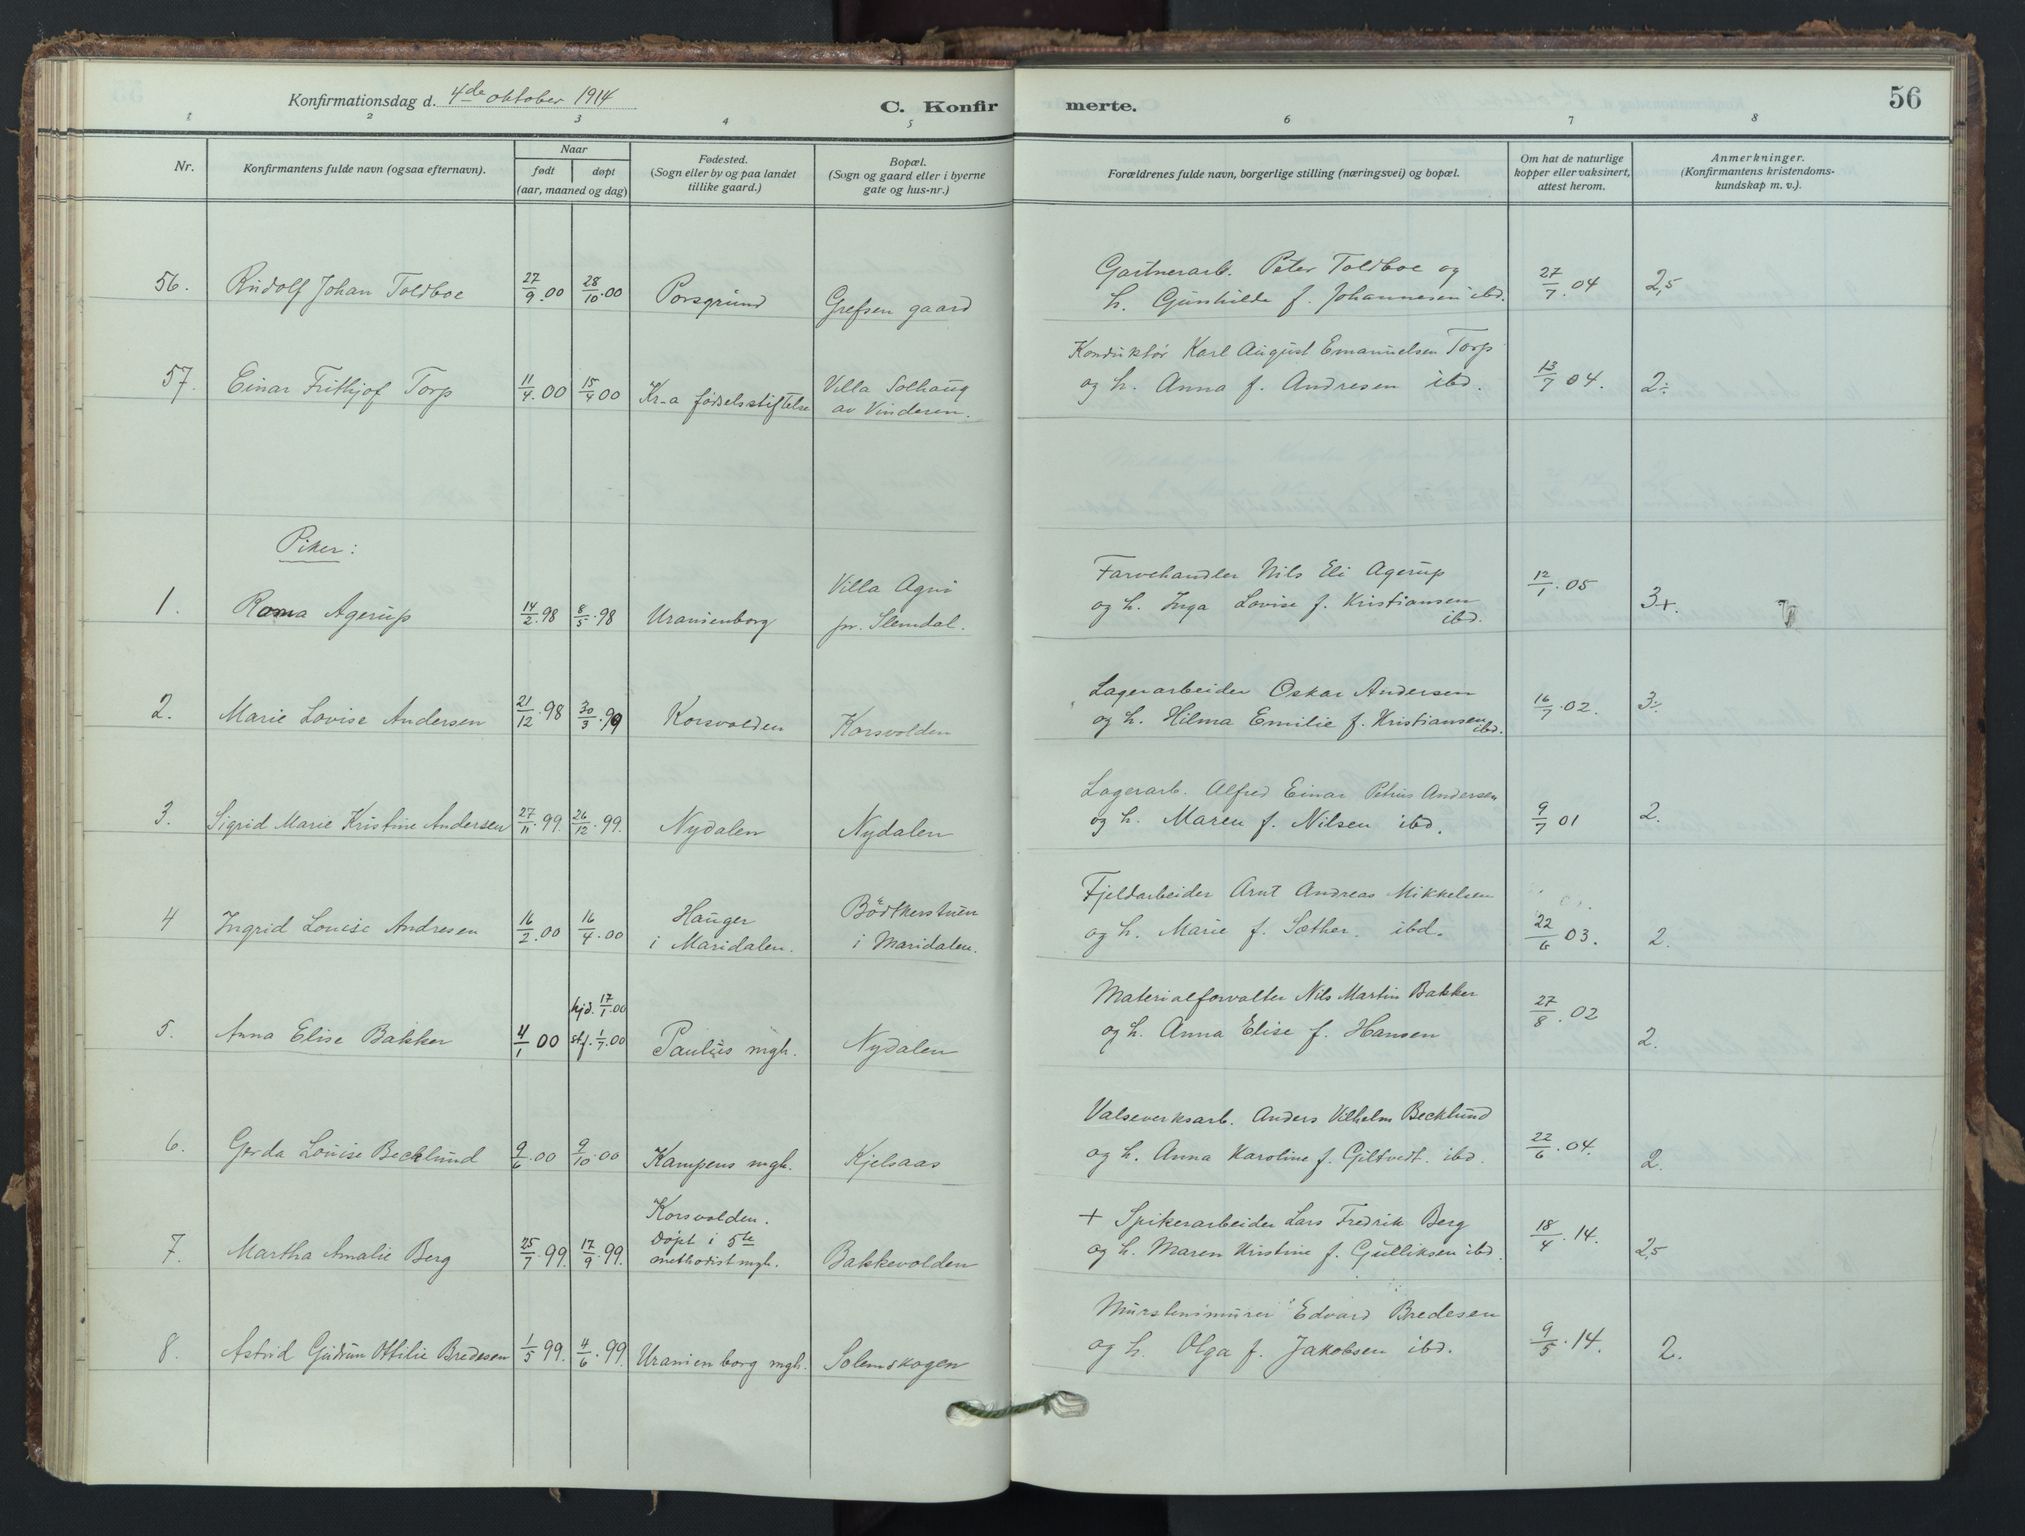 Konfirmationsdag d. 4de oktober 1914
C. Konfirmerte.
56
1 2 3 4 5 6 7 8
Nr.
Konfirmantens fulde navn (ogsaa efternavn).
Naar
født
døpt
(aar, maaned og dag)
Fødested.
(Sogn eller by og paa landet
tillike gaard.)
Bopæl.
(Sogn og gaard eller i byerne
gate og hus-nr.)
Forældrenes fulde navn, borgerlige stilling (næringsvei) og bopæl.
Om hat de naturlige
kopper eller vaksinert,
attest herom.
Anmerkninger.
(Konfirmantens kristendoms-
kundskap m. v.)
56. Rudolf Johan Toldboe 27/9.00 28/10.00 Porsgrund Grefsen gaard
Gartnerarb. Peter Toldboe og
h. Gunhilde f. Johannesen ibd.
27/7.04 2,5
57. Einar Frithjof Torp 11/4.00 15/4 00 Kr-a fødselsstiftelse
Villa Solhaug
av Vinderen.
Konduktør Karl August Emanuelsen Torp
og h. Anna f. Andresen ibd.
13/7 04. 2÷
Piker:
1. Roma Agerup 14/2.98 8/5.98 Uranienborg
Villa Agni
pr. Slemdal.
Farvehandler Nils Eli Agerup
og h. Inga Lovise f. Kristiansen
ibd.
12/1.05 3+.
2. Marie Lovise Andersen 21/12.98 30/3.99 Korsvolden Korsvolden
Lagerarbeider Oskar Andersen
og h. Hilma Emilie f. Kristiansen
ibd.
16/7.02. 3÷
3. Sigrid Marie Kristine Andersen 27/11.99. 26/12.99. Nydalen Nydalen
Lagerarb. Alfred Einar Petrus Andersen
og h. Maren f. Nilsen ibd.
9/7 01 2.
4 Ingrid Louise Andresen 16/2.00 16/4.00
Hauger
i Maridalen.
Bødtkerstuen
i Maridalen.
Fjeldarbeider Arnt Andreas Mikkelsen
og h. Marie f. Sæther. ibd.
22/6 03. 2.
5. Anna Elise Bakker 4/1 00
hjd. 17/1.00
stf. 1/7.00
Paulus mgh. Nydalen
Materialforvalter Nils Martin Bakker
og h. Anna Elise f. Hansen
27/8.02 2.
6. Gerda Louise Becklund 9/6.00 9/10.00 Kampens mgh. Kjelsaas
Valseverksarb. Anders Vilhelm Becklund
og h. Anna Karoline f. Giltvedt. ibd.
22/6.04. 2.
7. Martha Amalie Berg 25/7.99. 17/9.99.
Korsvolden.
Døpt i 5te
methodistmgh.
Bakkevolden
+ Spikerarbeider Lars Fredrik Berg
og h. Maren Kristine f. Gulliksen ibd.
18/4.14. 2,5
8. Astrid Gudrun Ottilie Bredesen 1/5 99. 4/6.99. Uranienborg mgh. Solemskogen
Murstensmurer Edvard Bredesen
og h. Olga f. Jakobsen ibd.
9/5.14. 2.